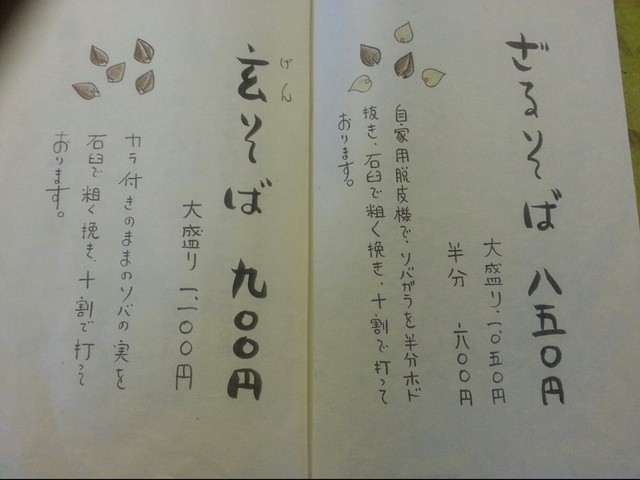 ざるそば 八五〇円
大盛り 一、〇五〇円
半分 六〇〇円
自家用脱皮機で、ソバガラを半分ホド
抜き、石臼で粗く挽き、十割で打って
おります。
げん
玄そば 九〇〇円
大盛り 一、一〇〇円
カラ付きのままのソバの実を
石臼で粗く挽き、十割で打って
おります。